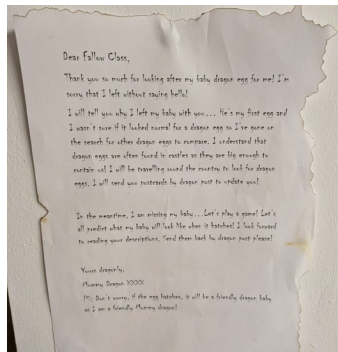 Dear Fallow Class,
Thank you so much for looking after my baby dragon egg for me! I'm
sorry that I left without saying hello!
I will tell you why I left my baby with you... He's my first egg and
I wasn't sure if it looked normal for a dragon egg so I've gone on
the search for other dragon eggs to compare. I understand that
dragon eggs are often found in castles as they are big enough to
contain us! I will be travelling round the country to look for dragon
eggs. I will send you postcards by dragon post to update you!
In the meantime, I am missing my baby...Let's play a game! Let's
all predict what my baby will look like when it hatches! I look forward
to reading your descriptions. Send them back by dragon post please!
Yours dragonly,
Mommy Dragon XXXX
PS: Don't worry, if the egg hatches, it will be a friendly dragon baby
as I am a friendly Mommy dragon!